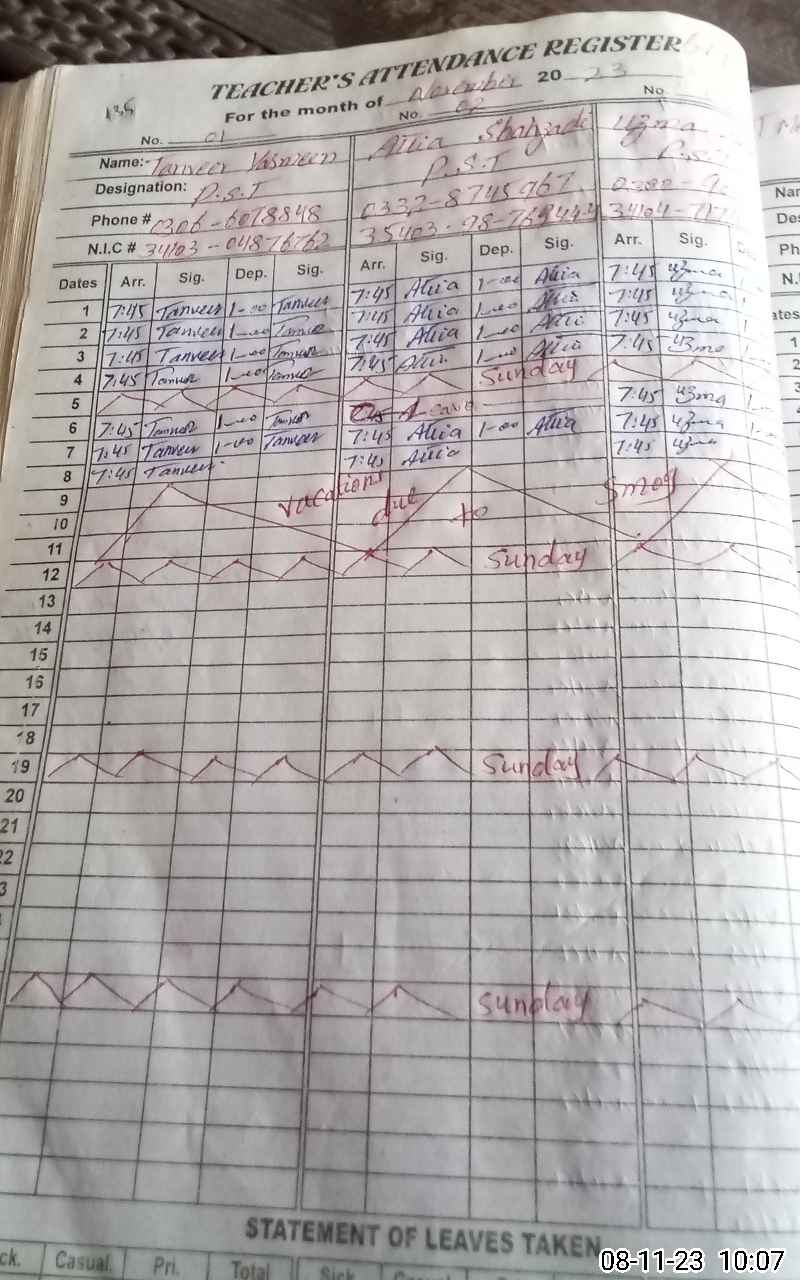 135
TEACHER'S ATTENDANCE REGISTER
For the month of November 20 23
No. 01 No. 02 No
Name:- Tanveer Yasmeen Attia Shahzadi Uzma
Designation: P.S.T P.S.T P.S.
Phone # 0306-6078848 0332-8745967
N.I.C # 34103-04876762 35403-98-
Dates Arr. Sig. Dep. Sig. Arr. Sig. Dep. Sig. Arr. Sig.
1 7:45 Tanveer 1-00 Tanveer 7:45 Attia 1-00 Attia 7:45 Uzma
2 7:45 Tanveer 1-00 Tanveer 7:45 Attia 1-00 Attia 7:45 Uzma
3 7:45 Tanveer 1-00 Tanveer 7:45 Attia 1-00 Attia 7:45 Uzma
4 7:45 Tanveer 1-00 Tanveer 7:45 Attia 1-00 Attia 7:45 Uzma
5 Sunday
6 7:45 Tanveer 1-00 Tanveer Leave 7:45 Uzma
7 7:45 Tanveer 1-00 Tanveer 7:45 Attia 1-00 Attia 7:45 Uzma
8 7:45 Tanveer 7:45 Attia 7:45 Uzma
9 vacations due to Smog
10
11
12 Sunday
13
14
15
16
17
18
19 Sunday
20
21
22
3
Sunday
STATEMENT OF LEAVES TAKEN
ck. Casual. Pri. Total Sick
Nar
Des
Ph
N.I
ates
1
2
3
08-11-23 10:07